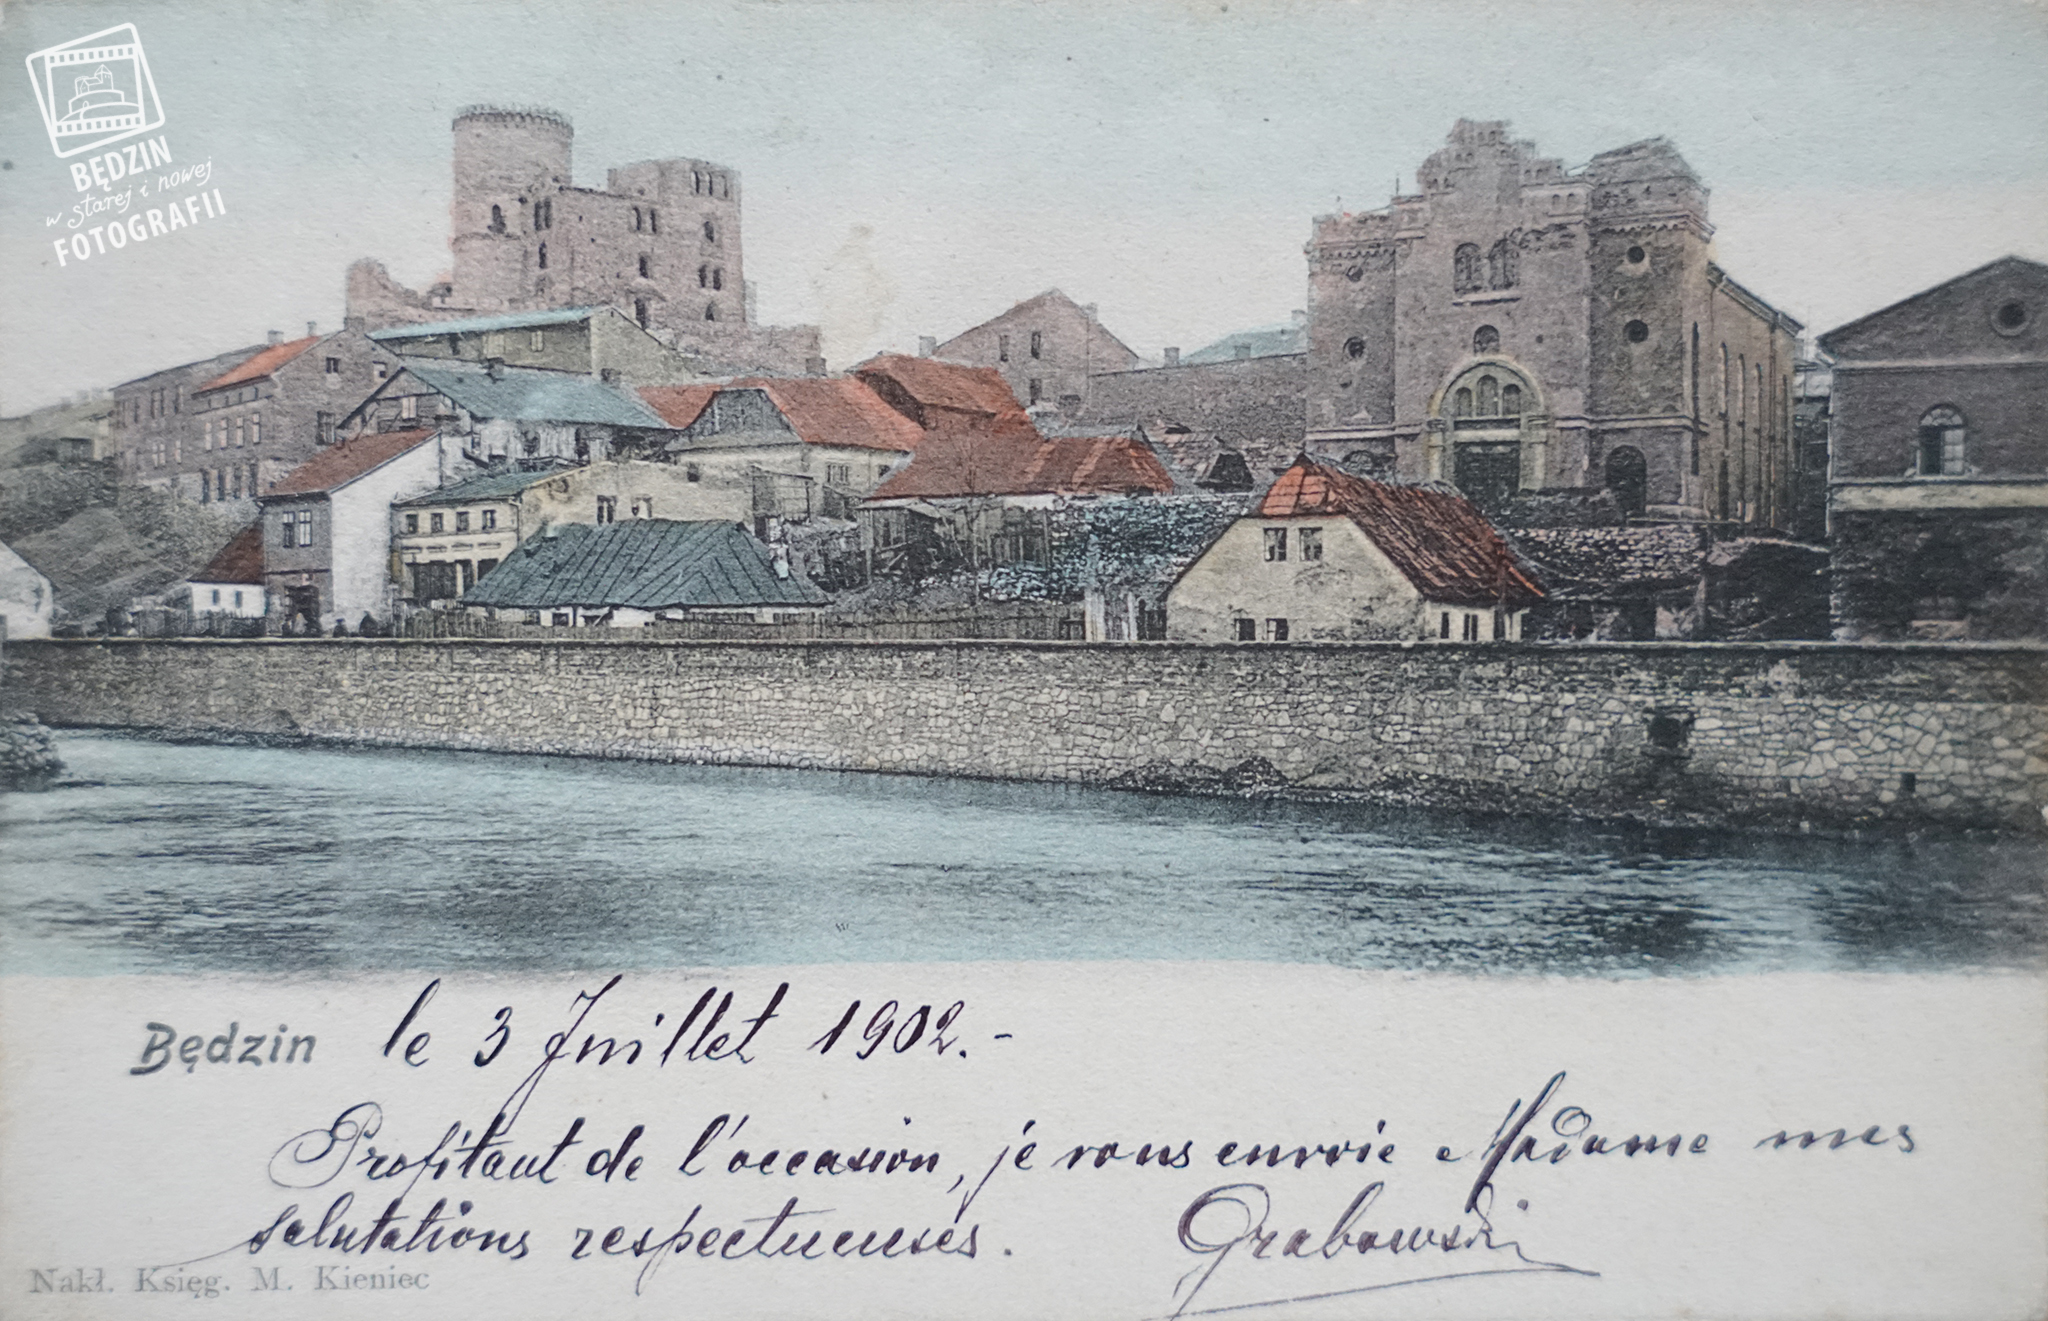 BĘDZIN
w starej i nowej
FOTOGRAFII
Będzin le 3 Juillet 1902.-
Profitant de l'occasion, je vous envoie Madame mes
salutations respectueuses. Grabowski
Nakł. Księg. M. Kieniec